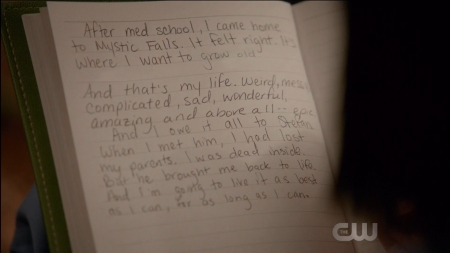 After med school, I came home
to Mystic Falls. It felt right. It's
where I want to grow old
And that's my life. Weird, messy
complicated, sad, wonderful,
amazing and above all... epic
And I owe it all to Stefan
When I met him, I had lost
my parents. I was dead inside.
But he brought me back to life.
And I'm going to live it as best
as I can, for as long as I can.
CW